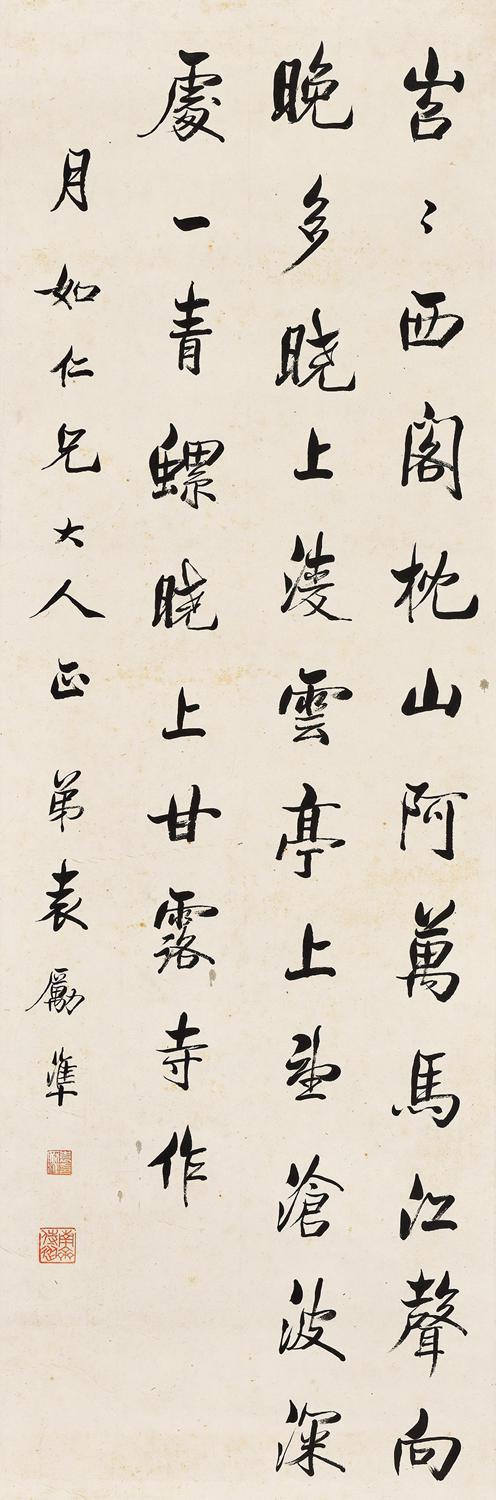 岧〻西閣枕山阿萬馬江聲向
晚多曉上淩雲亭上望滄波深
處一青螺曉上甘露寺作
月如仁兄大人正 弟袁勵準